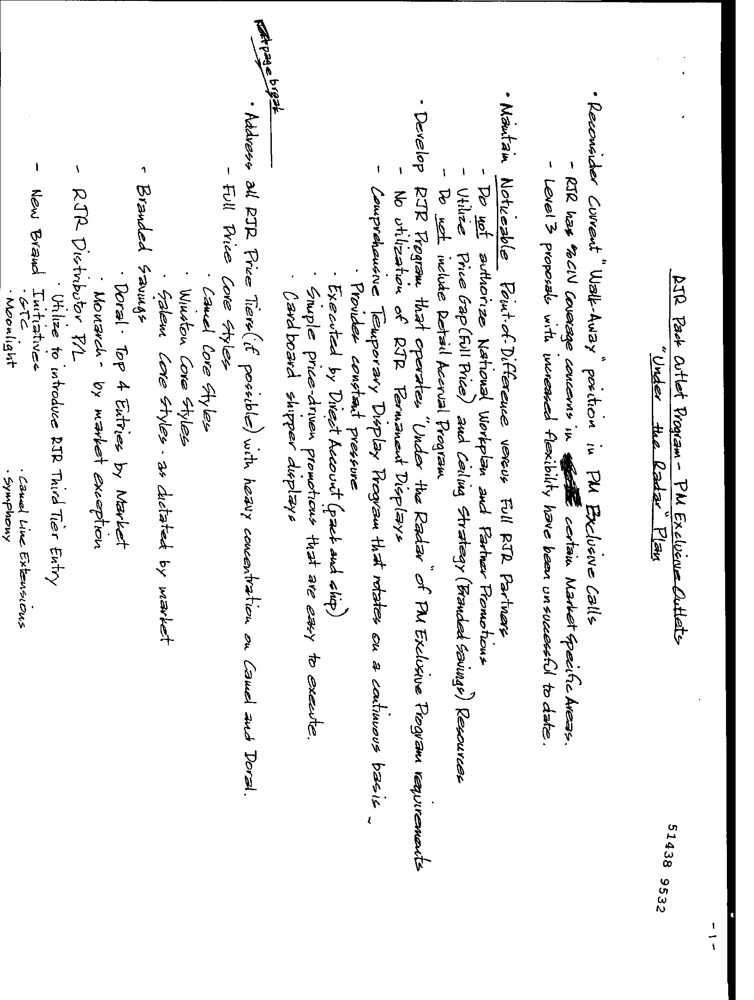 - 1 -
51438 9532
RJR Pack Outlet Program - PM Exclusive Outlets
"Under the Radar" Plan
• Reconsider Current "Walk-Away" position in PM Exclusive Calls
- RJR has % CIV coverage concerns in certain Market Specific Areas.
- Level 3 proposals with increased flexibility have been unsuccessful to date.
• Maintain Noticeable Point-of-Difference versus Full RJR Partners
- Do not authorize National Workplan and Partner Promotions
- Utilize Price Gap (Full Price) and Ceiling Strategy (Branded Savings) Resources
- Do not include Retail Accrual Program
• Develop RJR Program that operates "Under the Radar" of PM Exclusive Program requirements
- No utilization of RJR Permanent Displays
- Comprehensive Temporary Display Program that rotates on a continuous basis
• Provides constant pressure
• Executed by Direct Account (pack and ship)
• Simple price-driven promotions that are easy to execute.
Cardboard shipper displays
page break
• Address all RJR Price Tiers (if possible) with heavy concentration on Camel and Doral.
- Full Price Core Styles
• Camel Core Styles
• Winston Core Styles
• Salem Core Styles - as dictated by market
- Branded Savings
• Doral - Top 4 Entries by Market
• Monarch - by market exception
- RJR Distributor P/L
• Utilize to introduce RJR Third Tier Entry
- New Brand Initiatives
• GTC • Camel Line Extensions
• Moonlight • Symphony